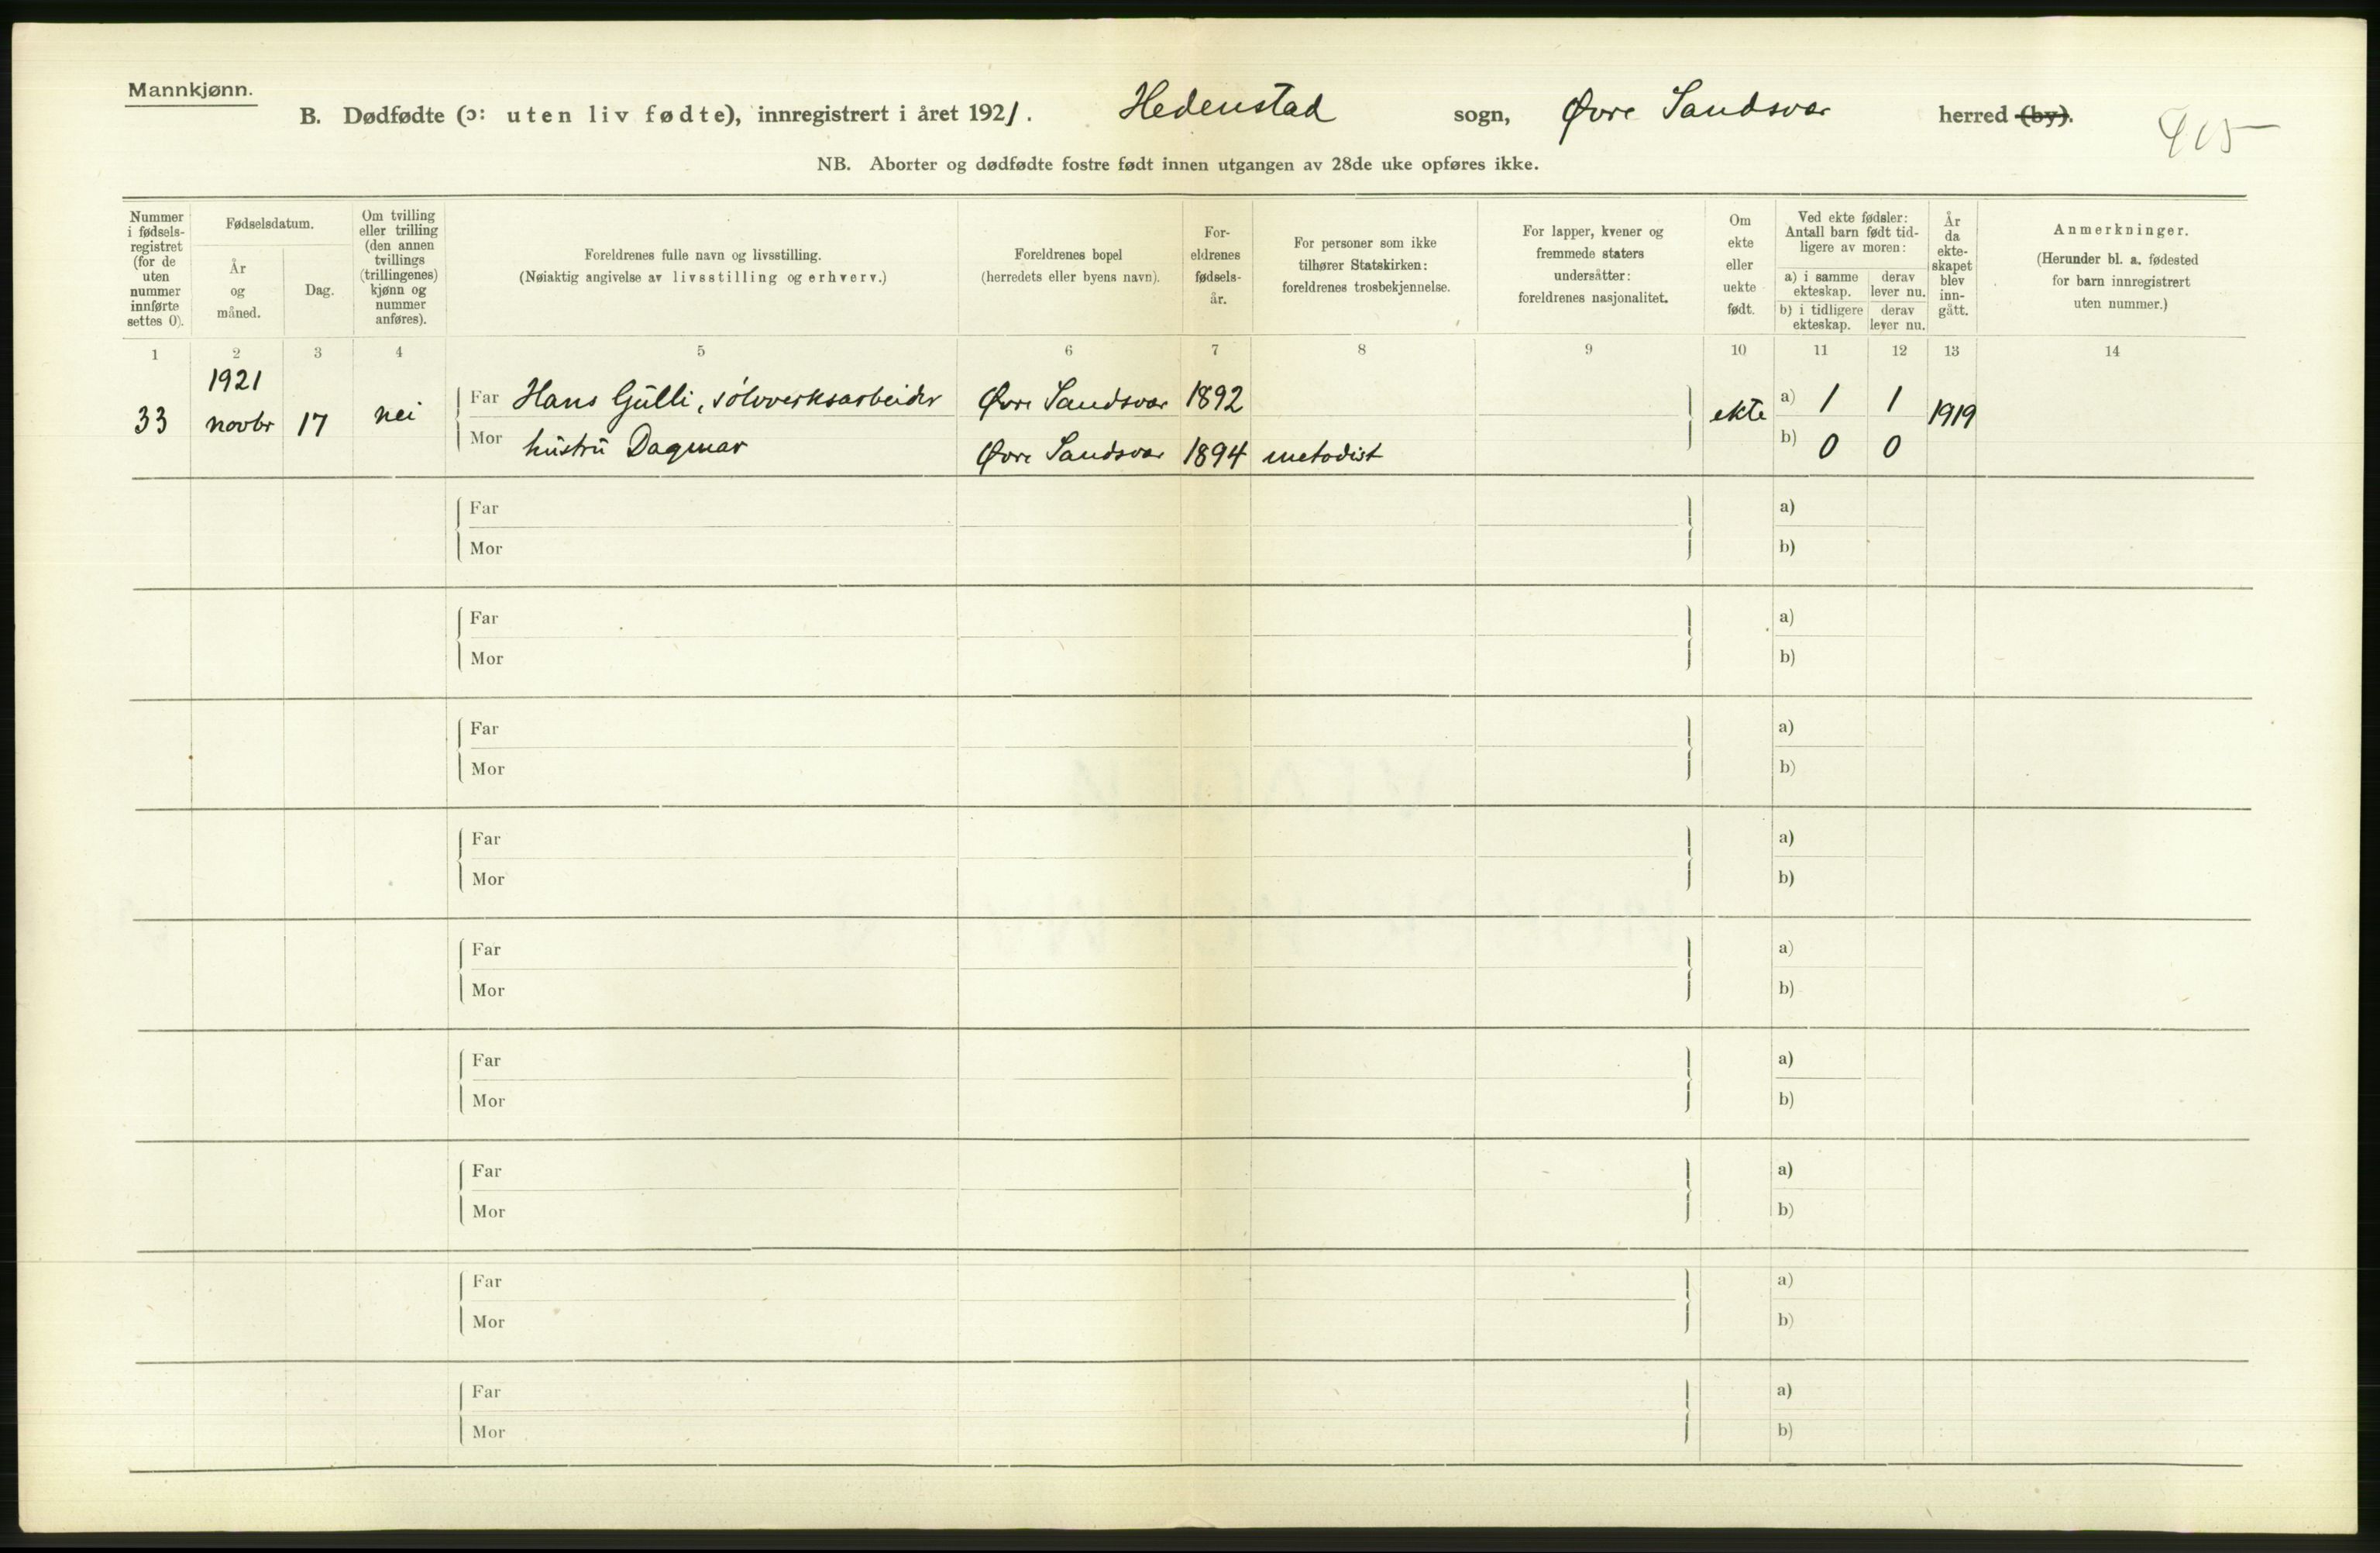 Mannkjønn.
B. Dødfødte (ɔ: uten liv fødte), innregistrert i året 1921. Hedenstad sogn, Øvre Sandsvær herred (by).
405
NB. Aborter og dødfødte fostre født innen utgangen av 28de uke opføres ikke.
Nummer i fødsels-registret (for de uten nummer innførte settes 0).
Fødselsdatum.
År og måned.
Dag.
Om tvilling eller trilling (den annen tvillings (trillingenes) kjønn og nummer anføres).
Foreldrenes fulle navn og livsstilling.
(Nøiaktig angivelse av livsstilling og erhverv.)
Foreldrenes bopel
(herredets eller byens navn).
For-eldrenes fødsels-år.
For personer som ikke tilhører Statskirken: foreldrenes trosbekjennelse.
For lapper, kvener og fremmede staters undersåtter: foreldrenes nasjonalitet.
Om ekte eller uekte født.
Ved ekte fødsler: Antall barn født tid-ligere av moren:
a) i samme ekteskap.
derav lever nu.
b) i tidligere ekteskap.
derav lever nu.
År da ekte-skapet blev inn-gått.
Anmerkninger.
(Herunder bl. a. fødested for barn innregistrert uten nummer.)
1 2 3 4 5 6 7 8 9 10 11 12 13 14
1921
33 novbr 17 nei Far Hans Gulli, sølvverksarbeider Øvre Sandsvær 1892 ekte a) 1 1 1919
Mor hustru Dagmar Øvre Sandsvær 1894 metodist b) 0 0
Far a)
Mor b)
Far a)
Mor b)
Far a)
Mor b)
Far a)
Mor b)
Far a)
Mor b)
Far a)
Mor b)
Far a)
Mor b)
Far a)
Mor b)
Far a)
Mor b)